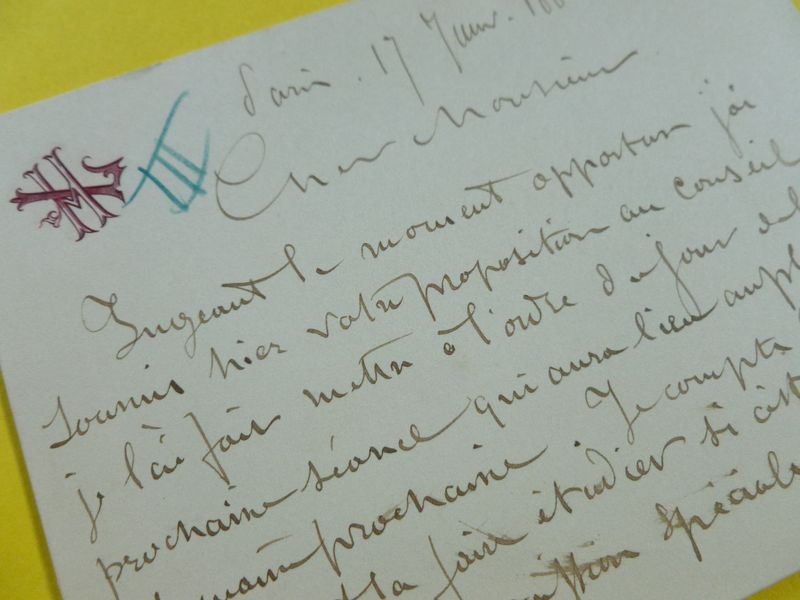 Paris. 17 Janv. 188
III
Cher Monsieur
Jugeant le moment opportun j'ai
soumis hier votre proposition au conseil
je l'ai fait mettre à l'ordre du jour de la
prochaine séance qui aura lieu au pl
semaine prochaine. Je compte
la faire étudier si c'est
spéciale